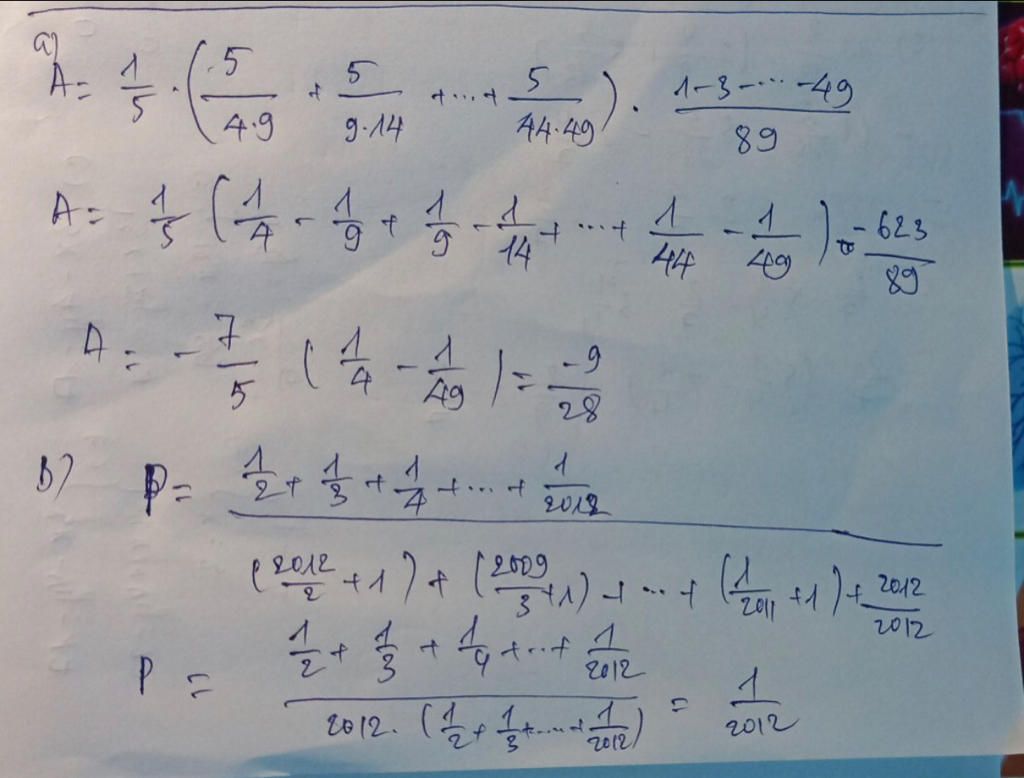 a)
A = 1/5 · (5/4·9 + 5/9·14 + ... + 5/44·49) · 1-3-...-49/89
A = 1/5 (1/4 - 1/9 + 1/9 - 1/14 + ... + 1/44 - 1/49) · -623/89
A = -7/5 (1/4 - 1/49) = -9/28
b) P = 1/2 + 1/3 + 1/4 + ... + 1/2012
(2012/2 + 1) + (2009/3 + 1) + ... + (1/2011 + 1) + 2012/2012
P = 1/2 + 1/3 + 1/4 + ... + 1/2012
2012. (1/2 + 1/3 + .... + 1/2012) = 1/2012